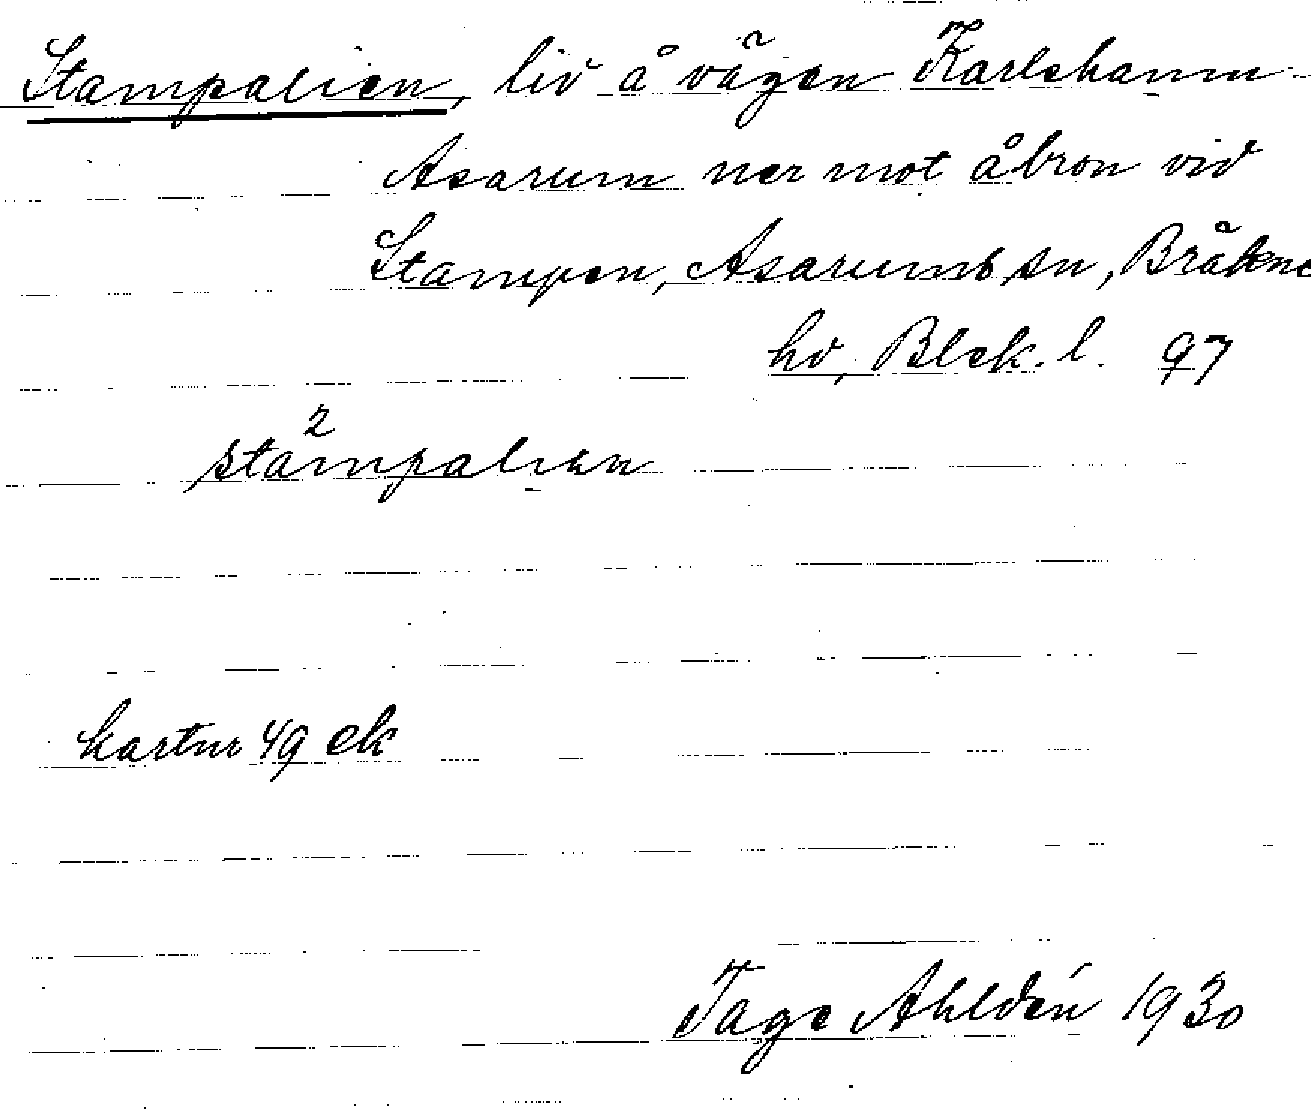 Stampalien, lid å vägen Karlshamn-
Asarum ner mot åbron vid
Stampen, Asarums sn, Bräkne
hd, Blek. l. 97
2
stampalien
kartnr 49 ek
Tage Ahldén 1930